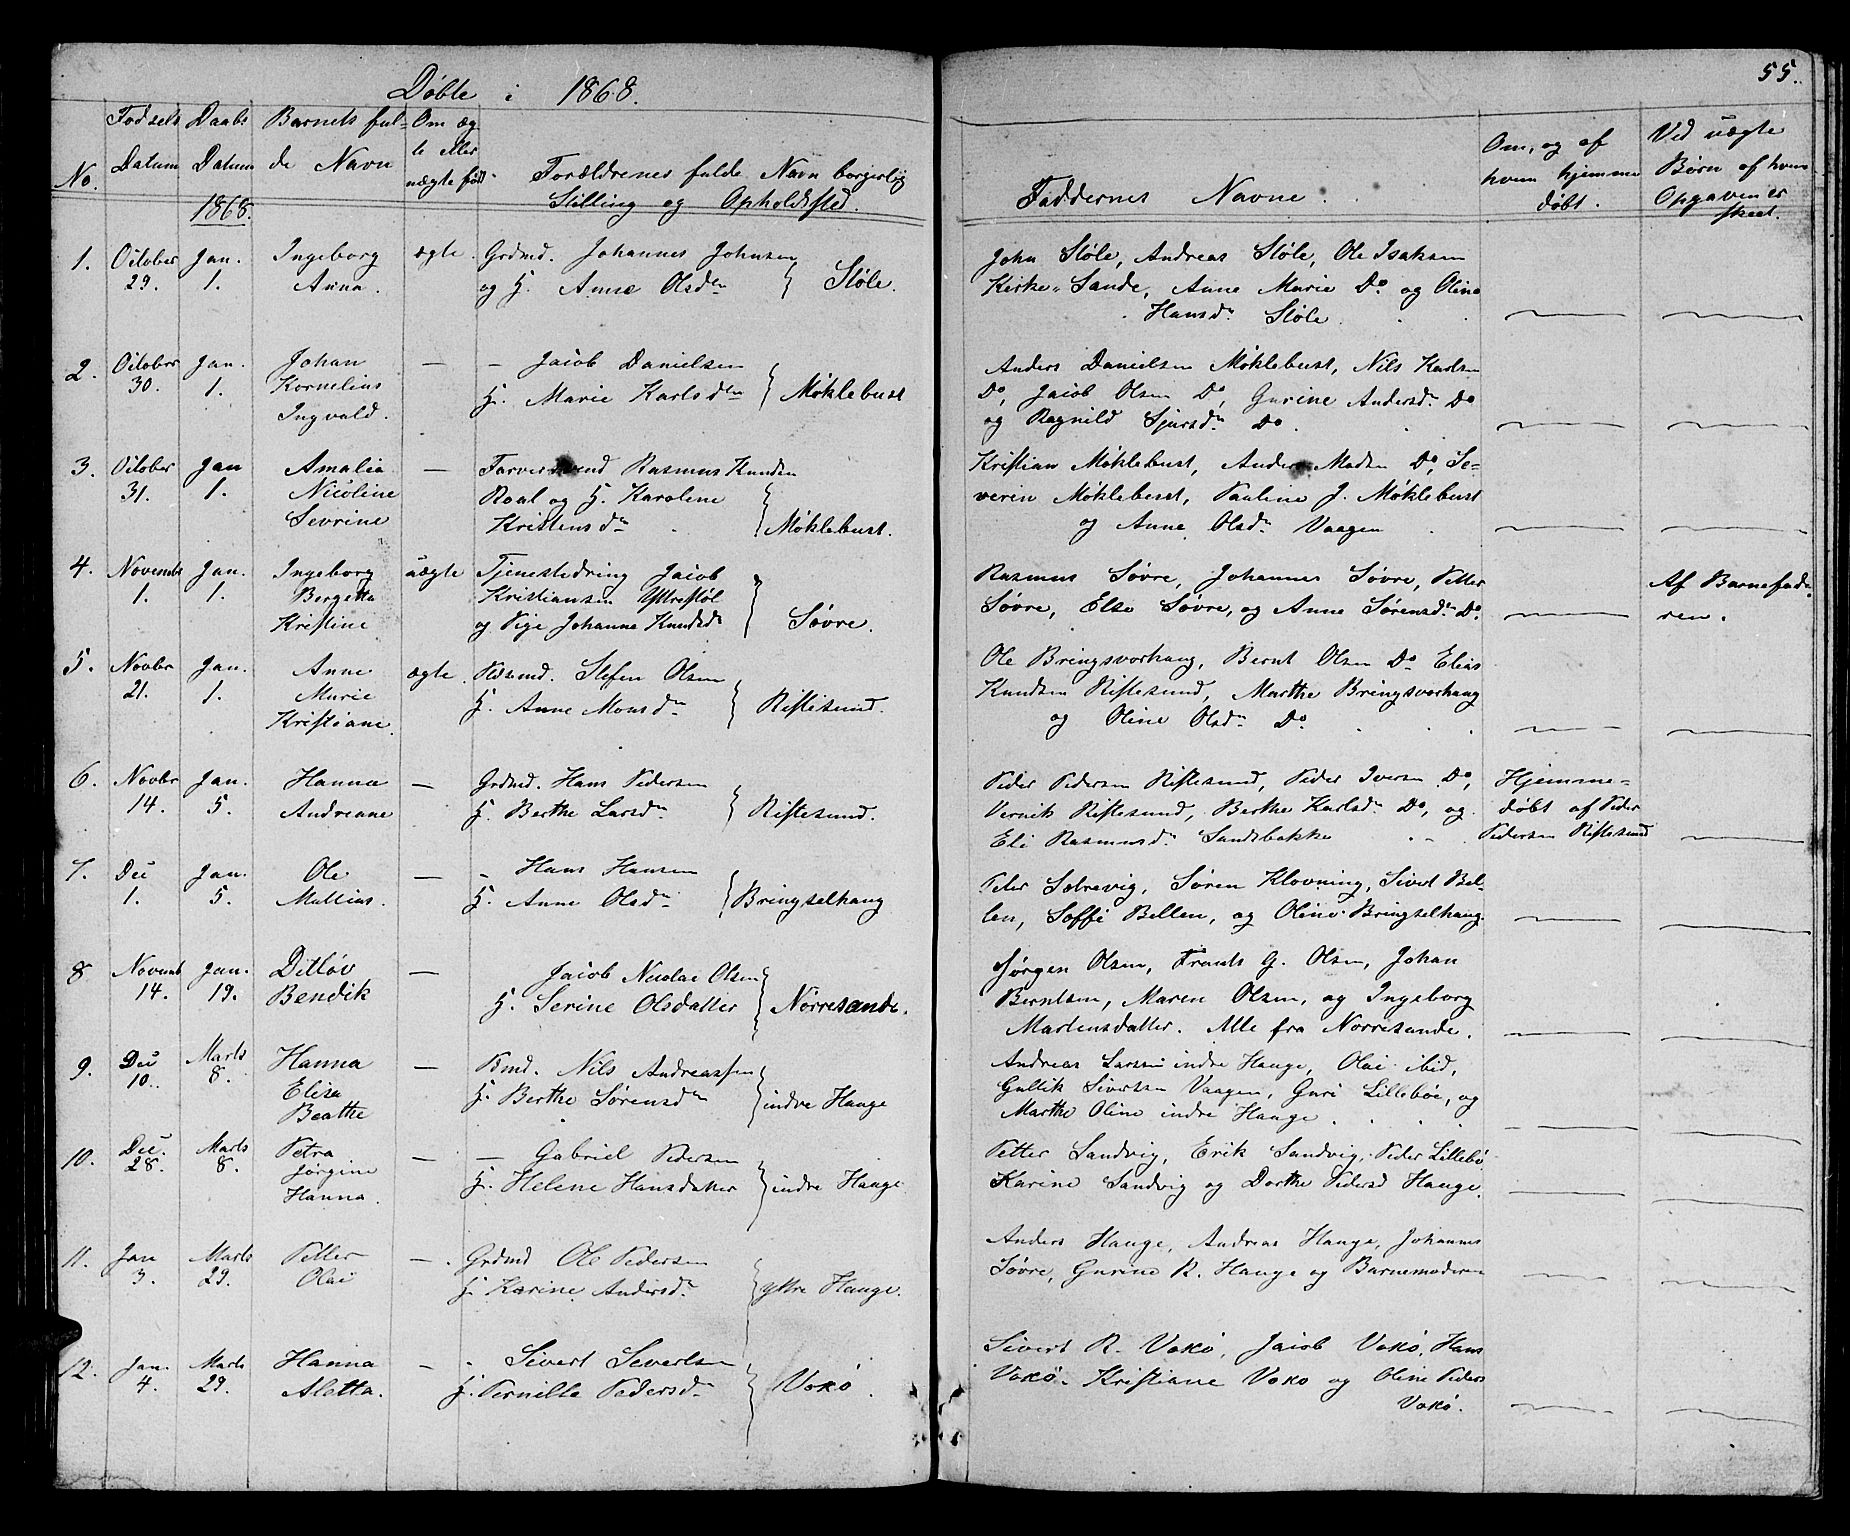 Døbte i 1868.
55.
No.
Fødsels Datum
Daabs Datum
Barnets fulde Navn
Om ægte eller uægte født
Forældrenes fulde Navn borgerlig
Stilling og Opholdssted.
Faddernes Navne.
Om, og af hvem hjemme døbt.
Ved uægte Børn af hvem Opgaven er skeet.
1868.
1. October 29. Jan. 1. Ingeborg Anna. ægte. Grdmd. Johannes Johnsen
og H. Anne Olsdtr } Støle.
John Støle, Andreas Støle, Ole Isaksen
Kirke-Sande, Anne Marie Do og Oline
Hansdr Støle.
2. October 30. Jan. 1. Johan Kornelius Ingvald. — — Jacob Danielsen
H. Marie Karlsdtr } Møklebust
Anders Danielsen Møklebust, Nils Karlsen
Do, Jacob Olsen Do, Gurine Andersdr Do
og Ragnild Sjursdr Do
3. October 31. Jan 1. Amalia Nicoline Sevrine — Farversvend Rasmus Knudsen
Roal og H. Karoline
Kristensdr } Møklebust.
Kristian Møklebust, Anders Madsen Do, Se-
verin Møklebust, Pauline J. Møklebust
og Anne Olsdr Vaagen
4. Novembr 1. Jan. 1. Ingeborg Bergetta Kristine uægte Tjenestedreng Jacob
Kristiansen Ystrestøl
og Pige Johanne Knudsdr } Søvre.
Rasmus Søvre, Johannes Søvre, Petter
Søvre, Else Søvre, og Anne Sørensdr Do.
Af Barnefad-
ren.
5. Novbr 21. Jan. 1. Anne Marie Kristiane. ægte. Stefen Olsen
H. Anne Monsdr } Riftesund.
Ole Bringsvorhaug, Bernt Olsen Do Elias
Knudsen Riftesund, Marthe Bringsvorhaug
og Oline Olsdr Do
6. Novbr 14. Jan. 5. Hanna Andreane — Grdmd. Hans Pedersen
H. Berthe Larsdr } Riftesund.
Peder Pedersen Riftesund, Peder Iversen Do,
Vernik Riftesund, Berthe Karlsdr Do, og
Eli Rasmusdr Sandsbakke
Hjemme-
døbt af Peder
Pedersen Riftesund
7. Dec 1. Jan. 5. Ole Mattias. — — Hans Hansen
H. Anne Olsdr } Bringselhaug
Peter Solrevig, Søren Klovning, Sivert Bel-
len, Soffi Bellen, og Oline Bringselhaug.
8 Novemb 14. Jan. 19. Ditløv Bendik — Jacob Nicolai Olsen
H. Serine Olsdatter } Norresande.
Jørgen Olsen, Frants G. Olsen, Johan
Berntsen, Maren Olsen, og Ingeborg
Martensdatter. Alle fra Norresande.
9. Dec 10. Marts 8. Hanna Elisa Beathe — Bmd. Nils Andreassen
H. Berthe Sørensdr } indre Hauge
Andreas Larsen indre Hauge, Olai ibid,
Gullik Sivertsen Vaagen, Guri Lillebøe, og
Marthe Oline indre Hauge.
10. Dec. 28. Marts 8. Petra Jørgine Hanna. — — Gabriel Pedersen
H. Helene Hansdatter } indre Hauge
Petter Sandvig, Erik Sandvig, Peder Lillebø
Karine Sandvig og Dorthe Pedersd Hauge.
11. Jan 3. Marts 29. Petter Olai — Grdmd Ole Pedersen
H. Karine Andersdr } ytre Hauge.
Anders Hauge, Andreas Hauge, Johannes
Søvre, Gurine R. Hauge og Barnemoderen
12. Jan. 4. Marts 29. Hanna Aletta. — — Sivert Severtsen
H. Pernille Pedersdr } Voxø.
Sivert R. Voxø, Jacob Voxø, Hans
Voxø, Kristiane Voxø og Oline Peders
Voxø.